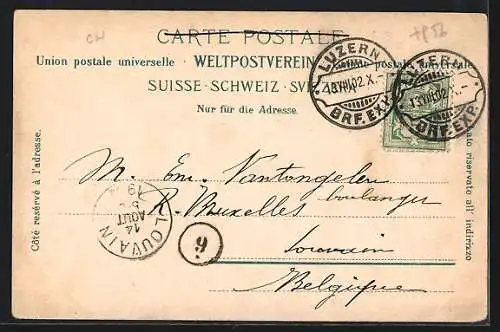 CH
CARTE POSTALE
Union postale universelle · WELTPOSTVEREIN postale universale
SUISSE · SCHWEIZ · SVI
Nur für die Adresse.
LUZERN
13.VIII.02.X.-
BRF.EXP.
LUZERN
13.VIII.02.X.-
BRF.EXP.
Côté réservé à l'adresse.
lato riservato all'indirizzo
M. Em. Vantongelen
boulanger
R. Bruxelles
Louvain
Belgique
LOUVAIN
14
AOUT
19
6